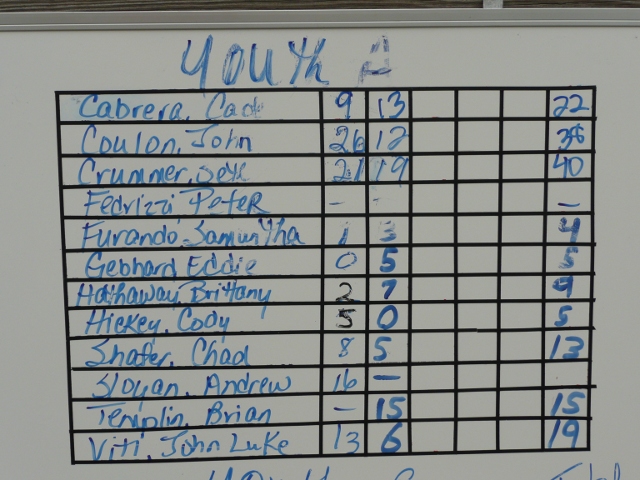 Youth A
Cabrera, Cade 9 13 22
Coulon, John 26 12 38
Crummer, 21 19 40
Fedrizzi Peter - - -
Furando, Samuntha 1 3 4
Gebhard Eddie 0 5 5
Hathaway, Brittany 2 7 9
Hickey, Cody 5 0 5
Shafer, Chad 8 5 13
Sloyan, Andrew 16 -
Templin, Brian - 15 15
Viti, John Luke 13 6 19